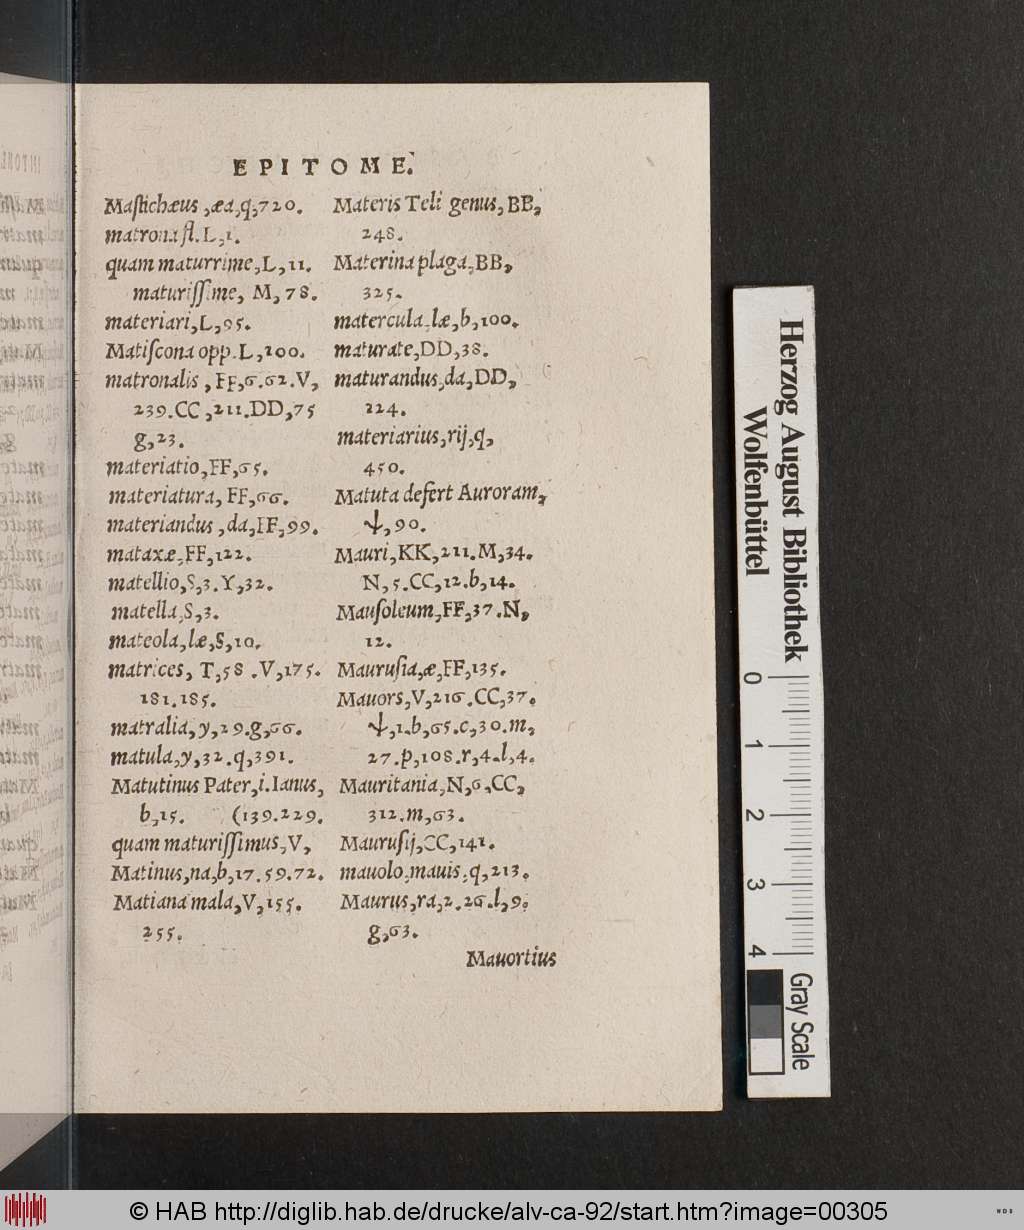 EPITOME.
Maſtichæus, æa, q, 720.
matrona fl. L, 1.
quam maturrime, L, 11.
maturiſſime, M, 78.
materiari, L, 95.
Matiſcona opp. L, 100.
matronalis, FF, 6. 62. V,
239. CC, 211. DD, 75
g, 23.
materiatio, FF, 65.
materiatura, FF, 66.
materiandus, da, FF, 99.
mataxæ, FF, 122.
matellio, S, 3. Y, 32.
matella, S, 3.
mateola, læ, S, 10.
matrices, T, 58. V, 175.
181. 185.
matralia, y, 29. g, 66.
matula, y, 32. q, 391.
Matutinus Pater, i. Ianus,
b, 15. (139. 229.
quam maturiſſimus, V,
Matinus, na, b, 17. 59. 72.
Matiana mala, V, 155.
255.
Materis Teli genus, BB,
248.
Materina plaga, BB,
325.
matercula, læ, b, 100.
maturate, DD, 38.
maturandus, da, DD,
224.
materiarius, rij, q,
450.
Matuta defert Auroram,
ↆ, 90.
Mauri, KK, 211. M, 34.
N, 5. CC, 12. b, 14.
Mauſoleum, FF, 37. N,
12.
Mauruſia, æ, FF, 135.
Mauors, V, 216. CC, 37.
ↆ, 1. b, 65. c, 30. m,
27. p, 108. r, 4. l, 4.
Mauritania, N, 6, CC,
312. m, 63.
Mauruſij, CC, 141.
mauolo, mauis, q, 213.
Maurus, ra, 2. 26. l, 9.
g, 63.
Mauortius
Herzog August Bibliothek
Wolfenbüttel
0 1 2 3 4
Gray Scale
© HAB http://diglib.hab.de/drucke/alv-ca-92/start.htm?image=00305